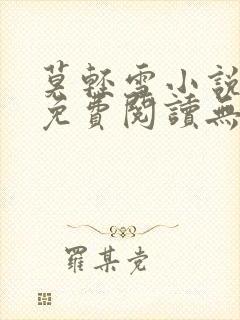 莫輕雪小說
免費閱讀無
羅某党